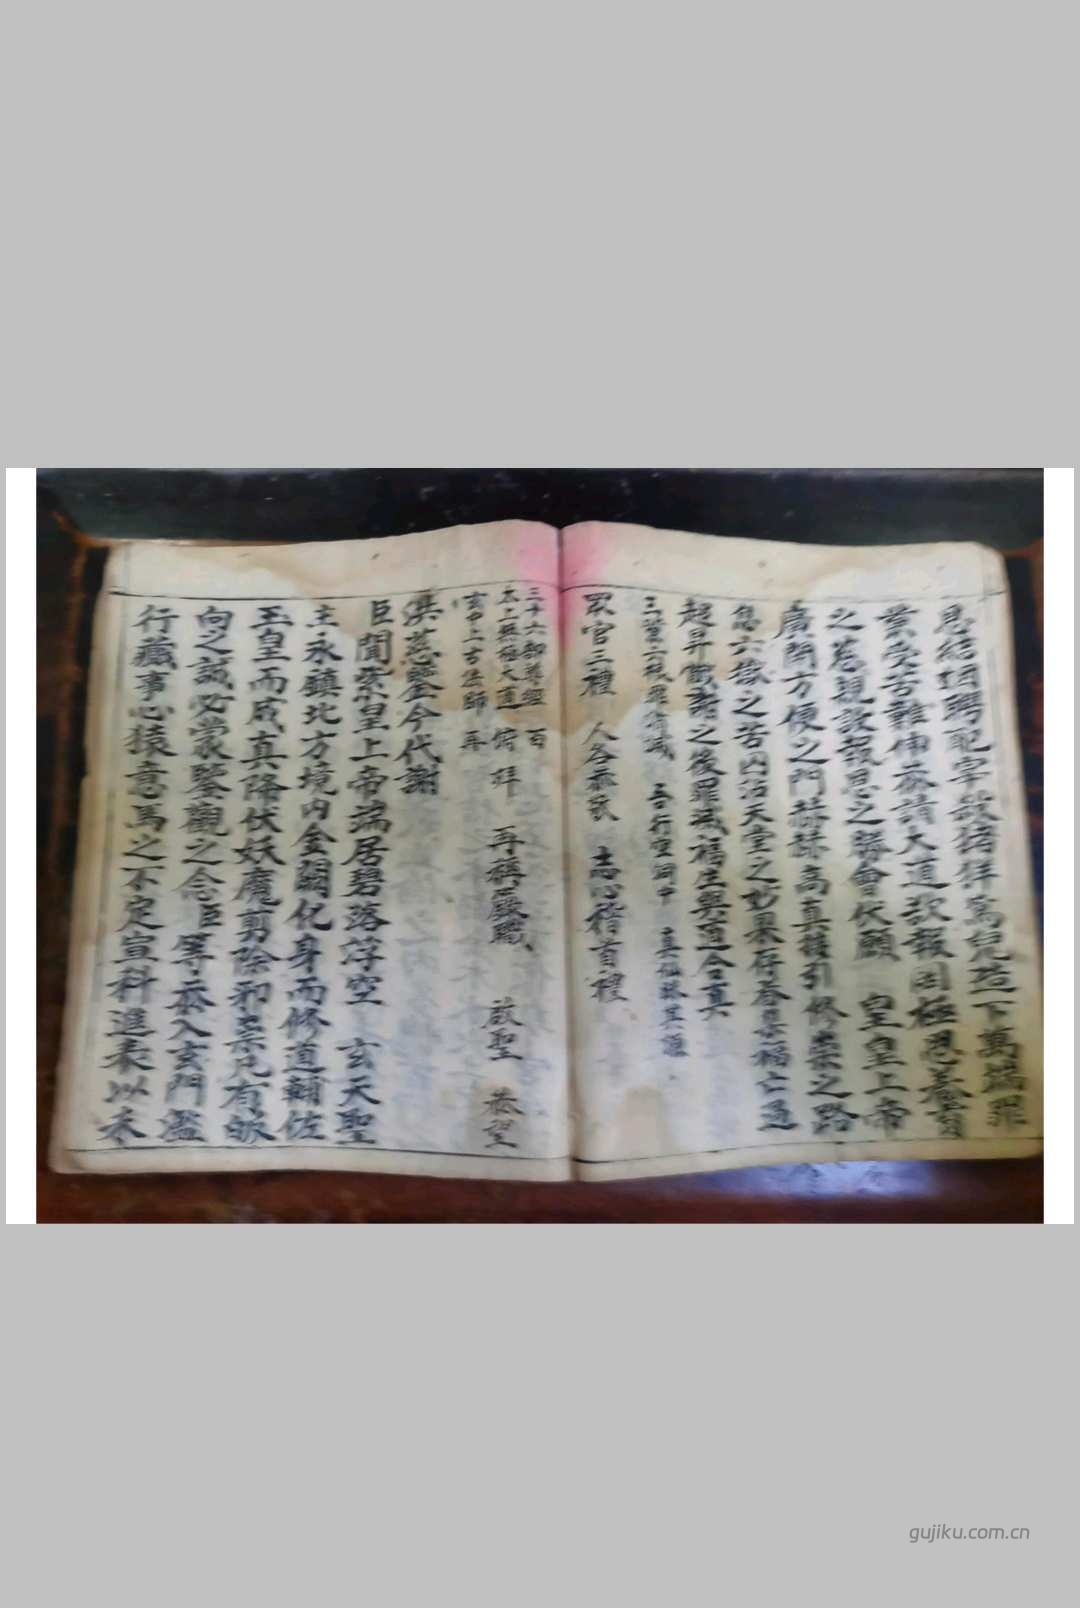 恩結姻聘配宰殺猪牂爲兒造下萬端罪
業受苦難伸叅請大道欲報罔極恩養育
之慈親欲報恩之勝會伏願 皇皇上帝
廣開方便之門赫赫高真接引修崇之路
息六獄之苦內沾天堂之妙果存眷集福亡過
超昇懺謝之後罪滅福生與道合真
三業六根罪消滅 吾行空洞中 真仙
眾官三禮 人各恭敬 志心稽首禮
三十六部尊經 百
太上無極大道 俯拜 再稱法職 啟聖 恭望
玄中上古法師 再
洪慈鑒今代謝
臣聞紫皇上帝端居碧落浮空 玄天聖
主永鎮北方境內金闕化身而修道輔佐
玉皇而成真降伏妖魔剪除邪祟凡有皈
向之誠必蒙鑒觀之念臣等叅入玄門濫
行藏事心猿意馬之不定宣科進表以未
gujiku.com.cn